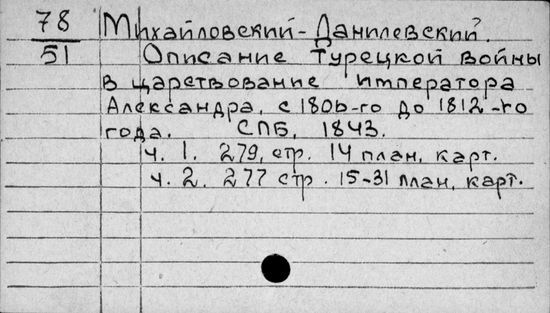 78 Михайловский-Данилевский.
51 Описание Турецкой войны
в царствование императора
Александра, с 1806-го до 1812-го
года. СПБ, 1843.
ч. 1. 279, стр. 14 план, карт.
ч. 2. 277 стр. 15-31 план, карт.